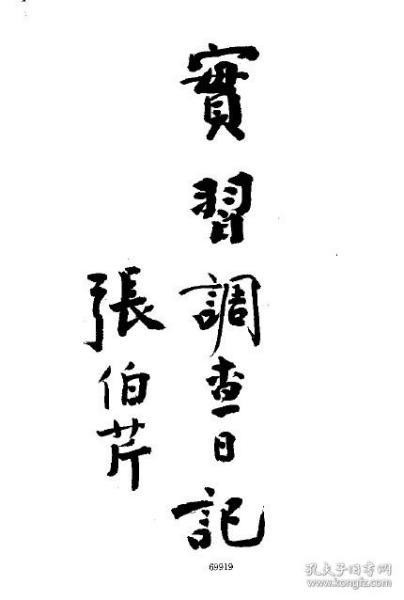 實習調查日記
張伯芹
69919
孔夫子旧书网
kongfz.com